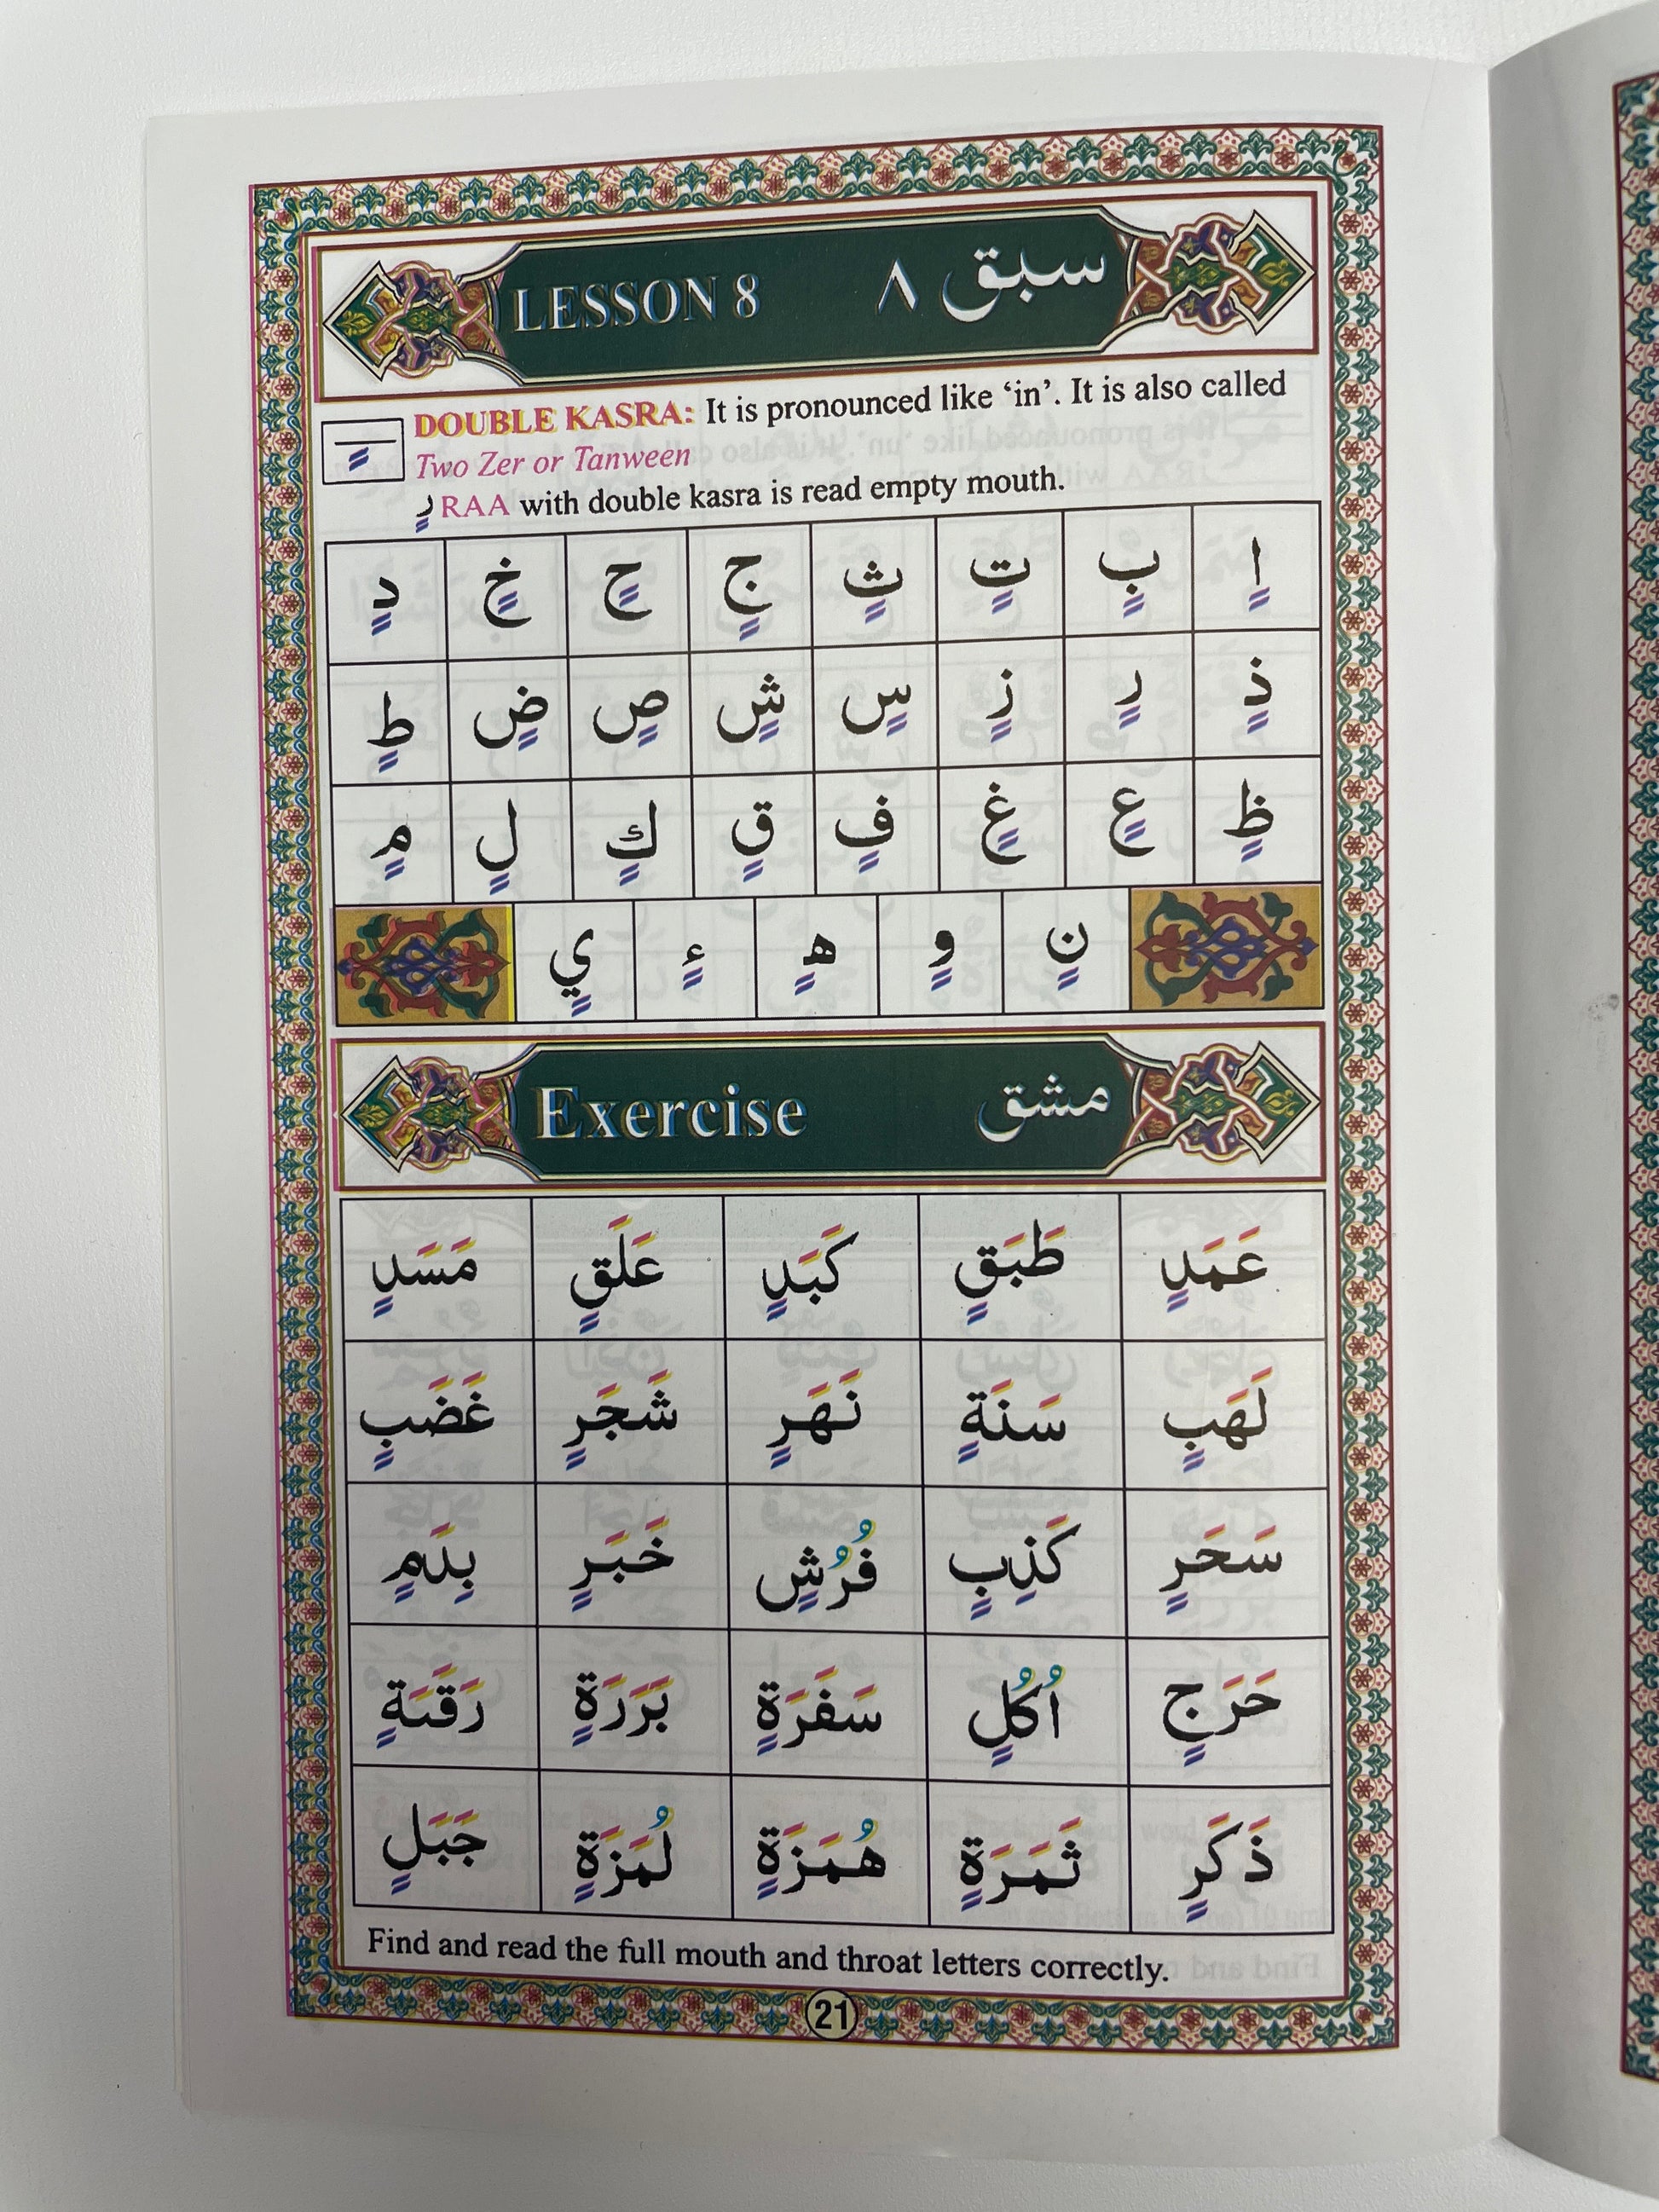 LESSON 8 سبق ٨
DOUBLE KASRA: It is pronounced like ‘in’. It is also called
Two Zer or Tanween
رٍ RAA with double kasra is read empty mouth.
اٍ بٍ تٍ ثٍ جٍ حٍ خٍ دٍ
ذٍ رٍ زٍ سٍ شٍ صٍ ضٍ طٍ
ظٍ عٍ غٍ فٍ قٍ كٍ لٍ مٍ
نٍ وٍ هٍ ءٍ يٍ
Exercise مشق
عَمَدٍ طَبَقٍ كَبَدٍ عَلَقٍ مَسَدٍ
لَهَبٍ سَنَةٍ نَهَرٍ شَجَرٍ غَضَبٍ
سَحَرٍ كَذِبٍ فُرُشٍ خَبَرٍ بِدَمٍ
حَرَجٍ اُكُلٍ سَفَرَةٍ بَرَرَةٍ
ذَكَرٍ ثَمَرَةٍ هُمَزَةٍ لُمَزَةٍ جَبَلٍ
Find and read the full mouth and throat letters correctly.
21